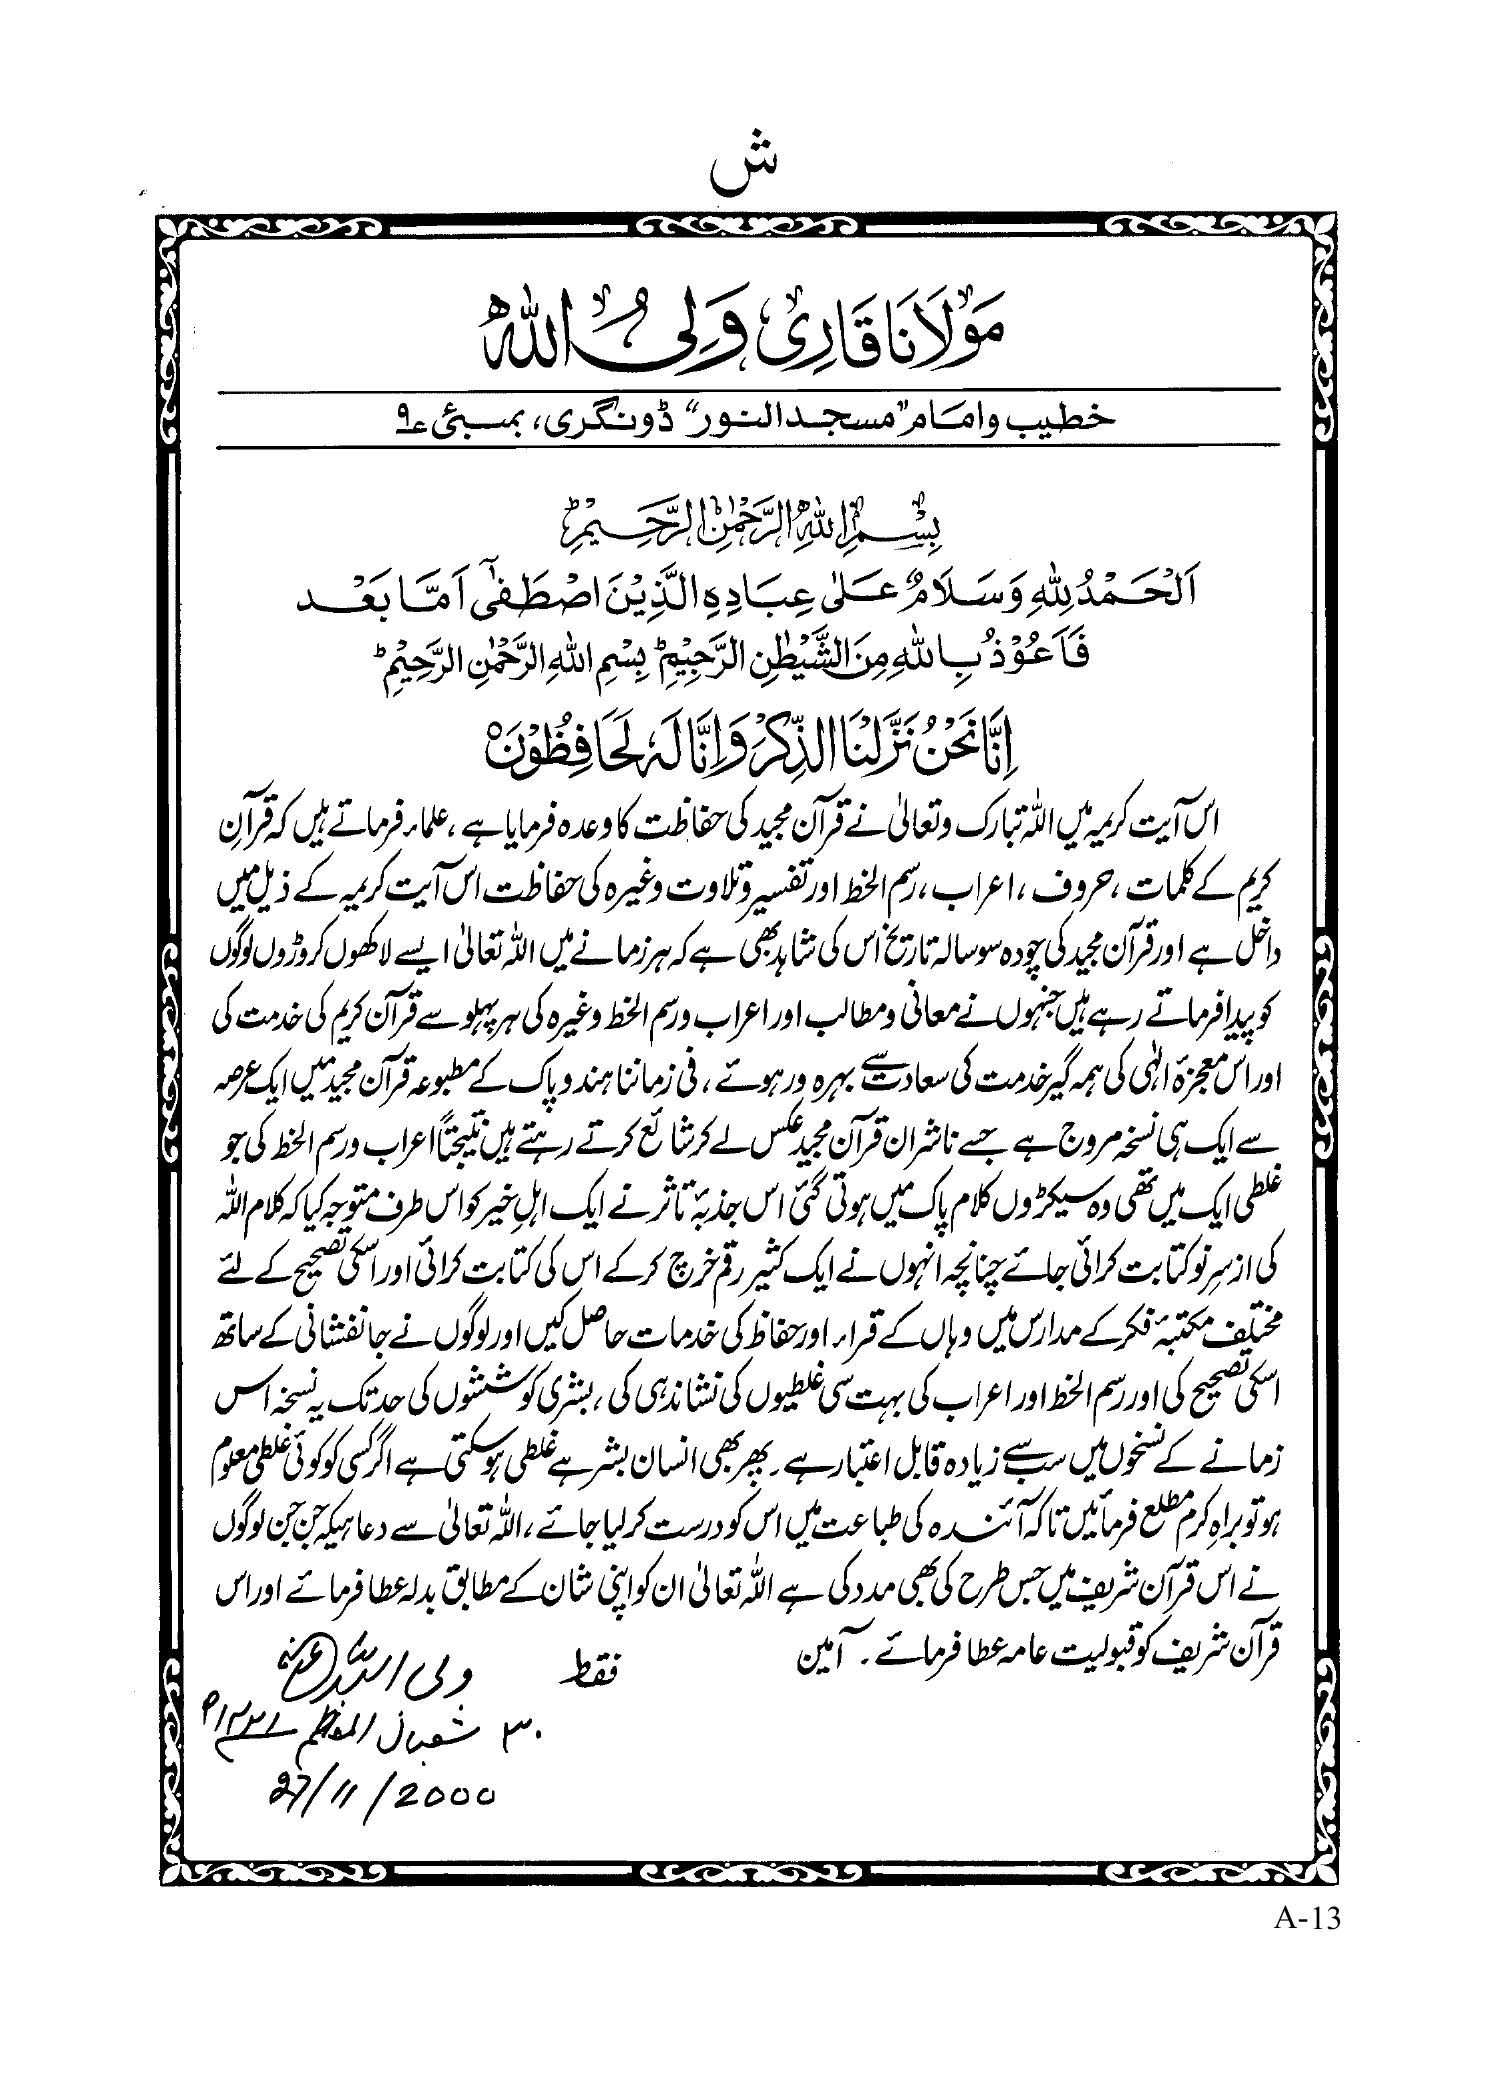 ش
مَوْلَانَا قَارِیْ وَلِیُ اللّٰهْ
خطیب و امام "مسجد النور" ڈونگری، بمبئی ۹
بِسْمِ اللّٰهِ الرَّحْمٰنِ الرَّحِيْمِ ط
اَلْحَمْدُ لِلّٰهِ وَسَلَامٌ عَلٰى عِبَادِهِ الَّذِيْنَ اصْطَفٰى اَمَّا بَعْد
فَاَعُوْذُ بِاللّٰهِ مِنَ الشَّيْطٰنِ الرَّجِيْمِ ط بِسْمِ اللّٰهِ الرَّحْمٰنِ الرَّحِيْمِ ط
اِنَّا نَحْنُ نَزَّلْنَا الذِّكْرَ وَاِنَّا لَهٗ لَحَافِظُوْنَ ○
اس آیت کریمہ میں اللہ تبارک وتعالیٰ نے قرآن مجید کی حفاظت کا وعدہ فرمایا ہے، علماء فرماتے ہیں کہ قرآنِ
کریم کے کلمات، حروف، اعراب، رسم الخط اور تفسیر و تلاوت وغیرہ کی حفاظت اس آیت کریمہ کے ذیل میں
داخل ہے اور قرآن مجید کی چودہ سو سالہ تاریخ اس کی شاہد بھی ہے کہ ہر زمانے میں اللہ تعالیٰ ایسے لاکھوں کروڑوں لوگوں
کو پیدا فرماتے رہے ہیں جنہوں نے معانی و مطالب اور اعراب و رسم الخط وغیرہ کی ہر پہلو سے قرآن کریم کی خدمت کی
اور اس معجزۂ الہٰی کی ہمہ گیر خدمت کی سعادت سے بہرہ ور ہوئے، فی زماننا ہند و پاک کے مطبوعہ قرآن مجید میں ایک عرصہ
سے ایک ہی نسخہ مروج ہے جسے ناشران قرآن مجید عکس لے کر شائع کرتے رہتے ہیں نتیجتاً اعراب و رسم الخط کی جو
غلطی ایک میں تھی وہ سیکڑوں کلام پاک میں ہوتی گئی اس جذبۂ تاثر نے ایک اہلِ خیر کو اس طرف متوجہ کیا کہ کلام اللہ
کی از سرِ نو کتابت کرائی جائے چنانچہ انہوں نے ایک کثیر رقم خرچ کر کے اس کی کتابت کرائی اور اسکی تصحیح کے لئے
مختلف مکتبۂ فکر کے مدارس میں وہاں کے قراء اور حفاظ کی خدمات حاصل کیں اور لوگوں نے جانفشانی کے ساتھ
اسکی تصحیح کی اور رسم الخط اور اعراب کی بہت سی غلطیوں کی نشاندہی کی، بشری کوششوں کی حد تک یہ نسخہ اس
زمانے کے نسخوں میں سب سے زیادہ قابل اعتبار ہے۔ پھر بھی انسان بشر ہے غلطی ہو سکتی ہے اگر کسی کو کوئی غلطی معلوم
ہو تو براہِ کرم مطلع فرمائیں تاکہ آئندہ کی طباعت میں اس کو درست کر لیا جائے، اللہ تعالیٰ سے دعا ہیکہ جن جن لوگوں
نے اس قرآن شریف میں جس طرح کی بھی مدد کی ہے اللہ تعالیٰ ان کو اپنی شان کے مطابق بدلہ عطا فرمائے اور اس
قرآن شریف کو قبولیت عامہ عطا فرمائے۔ آمین فقط ولی اللہ عفی عنہ
۳۰ شعبان المعظم ۱۴۲۱ھ
27/11/2000
A-13